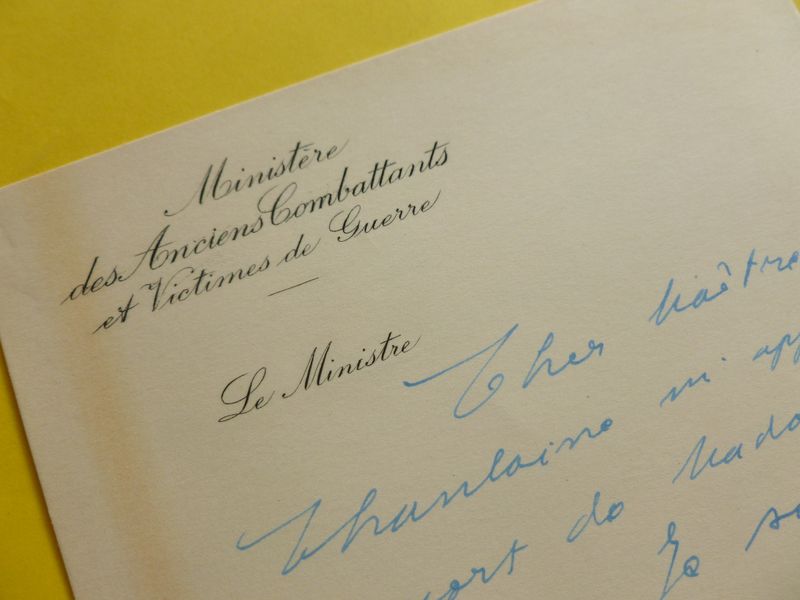 Ministère
des Anciens Combattants
et Victimes de Guerre
Le Ministre
Cher Maître
m'app
de Mada
Je su